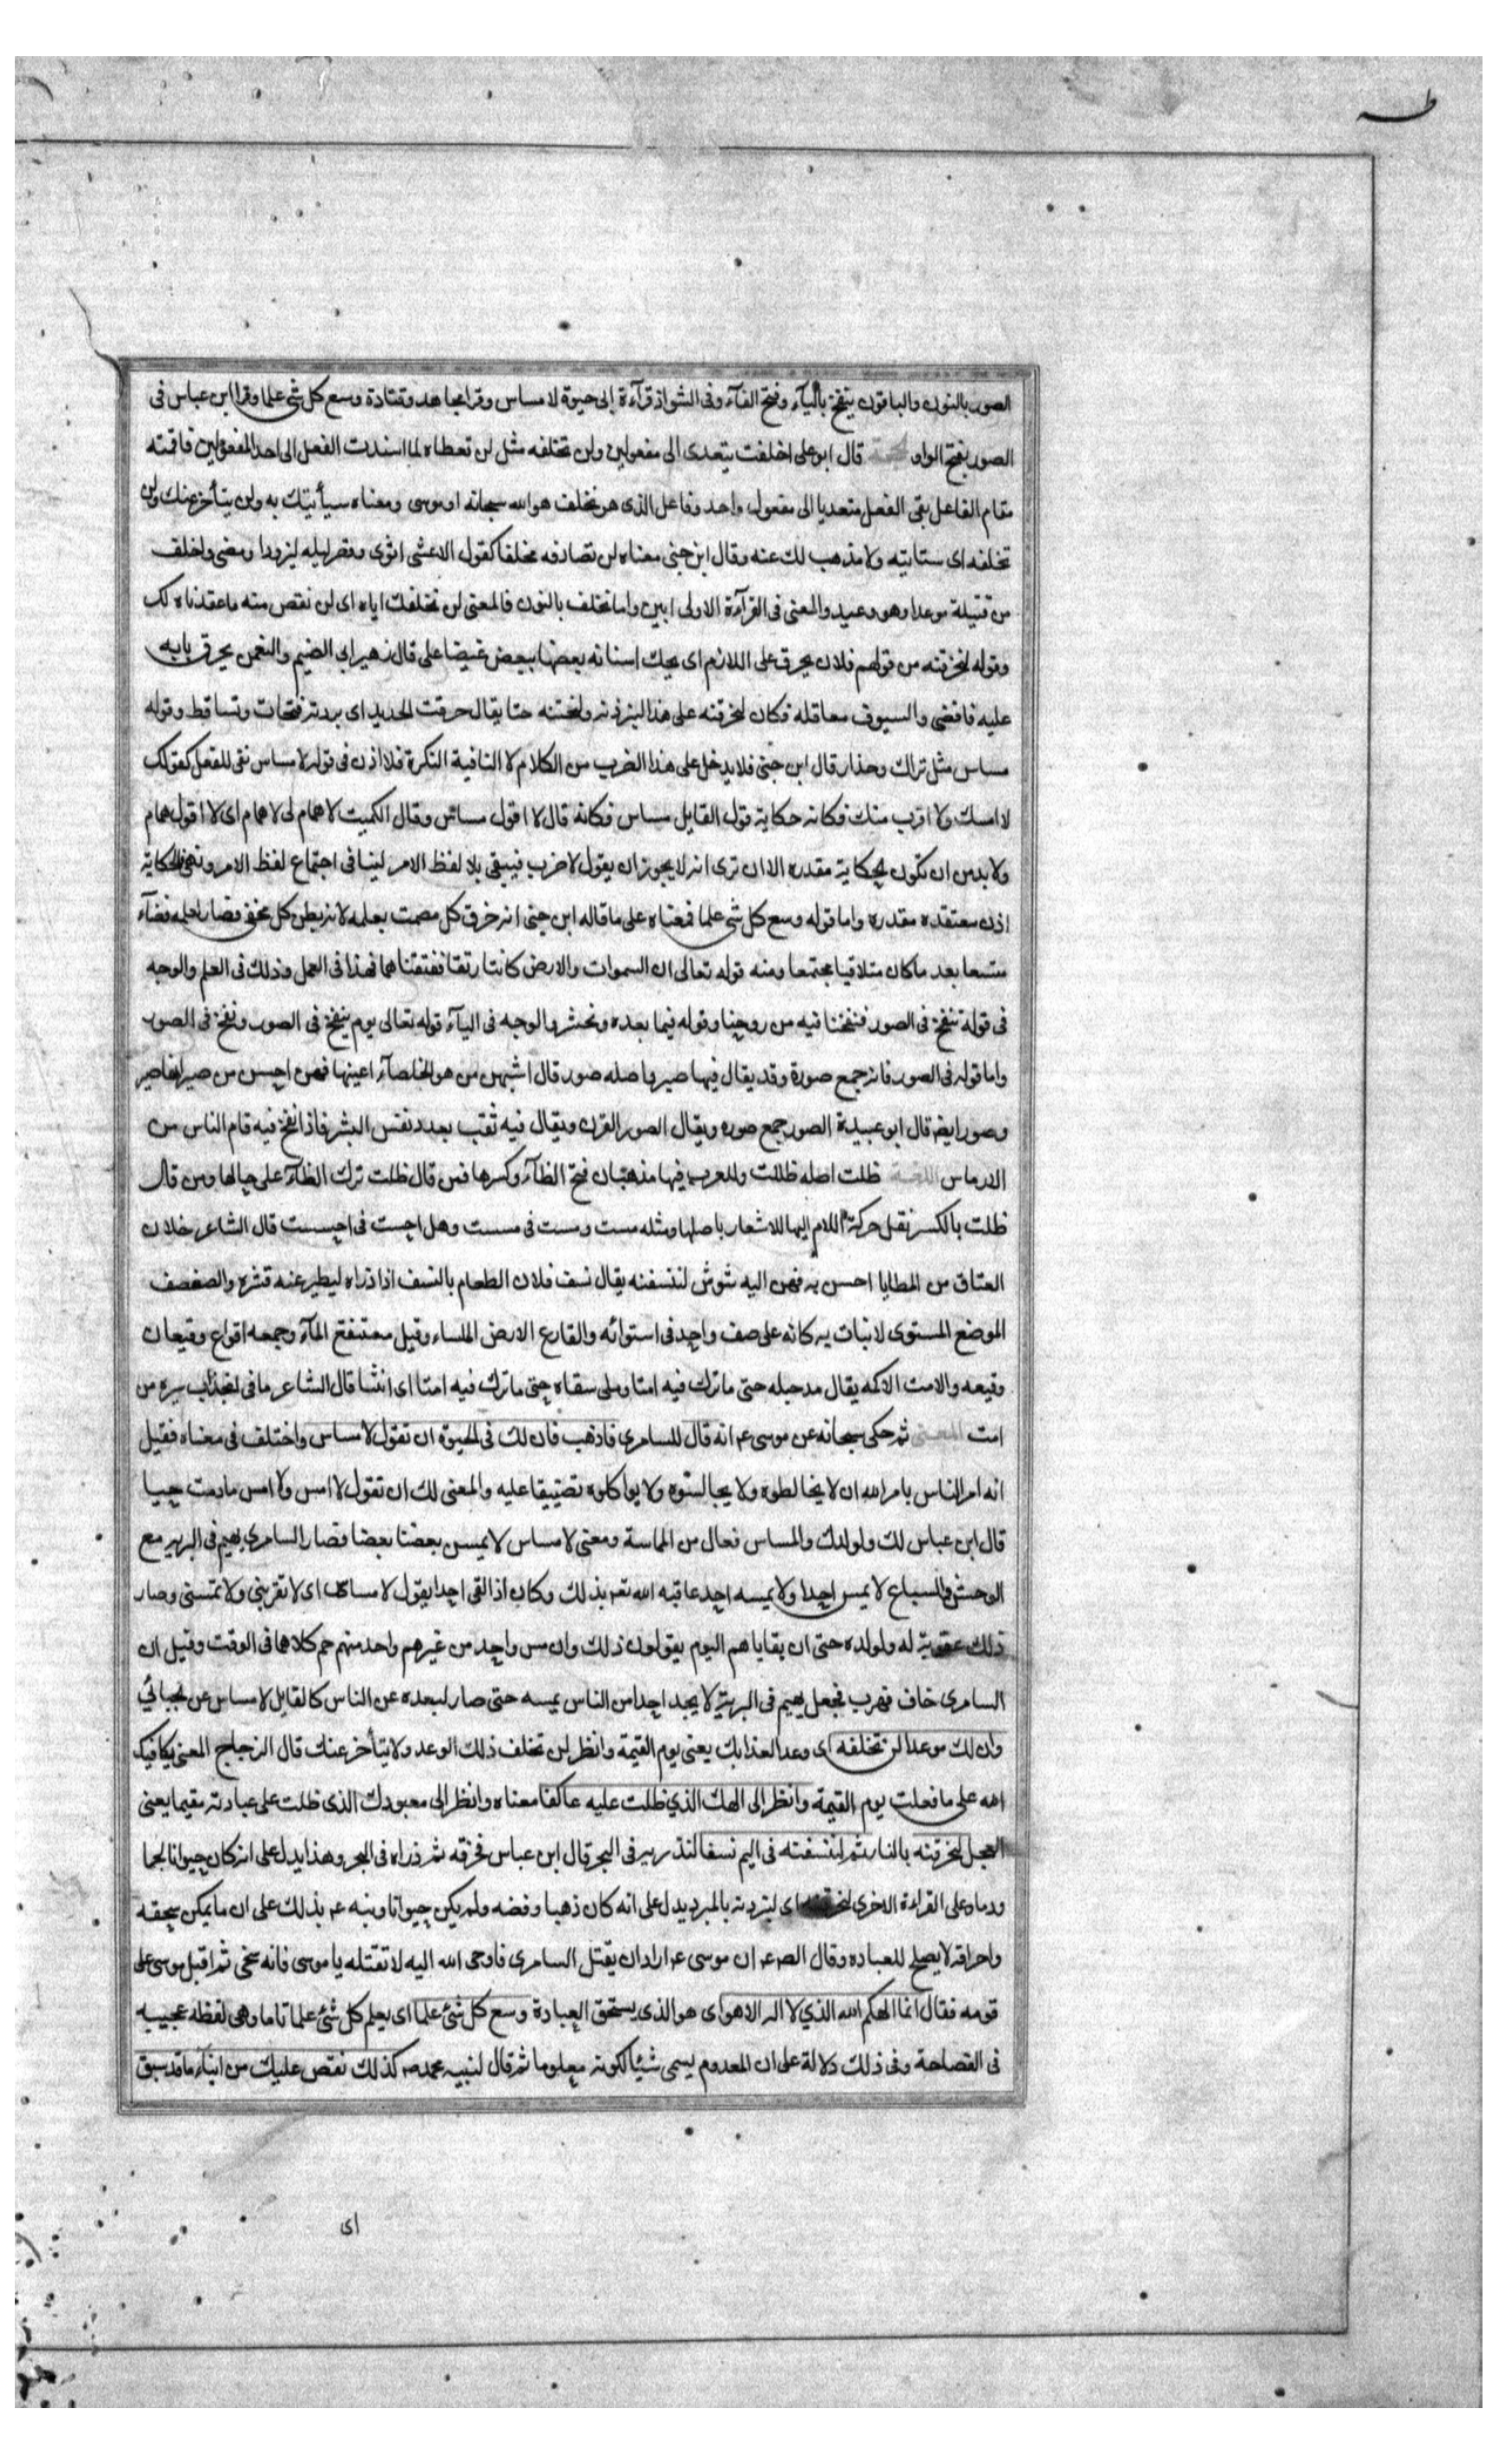 طه
الصور بالنون والباقون ينفخ بالياء وفتح الفآء وفى الشواذ قرآءة ابى حيوة لا مساس وقرا مجاهد وقتادة وسع كل شى علما وقرا ابن عباس فى
الصور بفتح الواو الحجة قال ابو على اخلفت يتعدى الى مفعولين ولن تخلفه مثل لن تعطاه لما اسندت الفعل الى احد المفعولين فاقمته
مقام الفاعل بقى الفعل متعديا الى مفعول واحد وفاعل الذى هو تخلف هو الله سبحانه او موسى ومعناه سيأتيك به ولن يتأخر عنك ولن
تخلفه اى ستاتيه ولا مذهب لك عنه وقال ابن جنى معناه لن تصادفه مخلفا كقول الاعشى اثوى وقصر ليله ليزودا ومضى واخلف
من قتيلة موعدا وهو وعيد والمعنى فى القرآءة الاولى ابين واما نخلف بالنون فالمعنى لن نخلفك اياه اى لن ننقص منه ما عقدناه لك
وقوله لنحرقنه من قولهم فلان يحرق على اللازم اى يحك اسنانه بعضها ببعض غيضا على قال زهير ابى الضيم والنعمن يحرق بابه
عليه فافضى والسيوف معاقله فكان لنحرقنه على هذا لنبردنه ولنحتنه حتا يقال حرقت الحديد اى بردته فتحات وتساقط وقوله
مساس مثل تراك وحذار قال ابن جنى فلا يدخل على هذا الضرب من الكلام لا النافية النكرة فلا اذن فى قوله لا مساس نفى للفعل كقولك
لا امسك ولا اقرب منك فكانه حكاية قول القايل مساس فكانه قال لا اقول مساس وقال الكميت لا همام لى لا همام اى لا اقول همام
ولا بد من ان تكون الحكاية مقدره الا ان ترى انه لا يجوز ان يقول لا ضرب فيبقى بلا لفظ الامر لينافى اجتماع لفظ الامر ونهى فالحكاية
اذن معتقده مقدره واما قوله وسع كل شى علما فمعناه على ما قاله ابن جنى انه خرق كل مصمت بعلمه لانه بطن كل مخفى فصار لعلمه فضآء
متسعا بعد ما كان متلاقيا مجتمعا ومنه قوله تعالى ان السموات والارض كانتا رتقا ففتقناهما فهذا فى العمل وذلك فى العلم والوجه
فى قولة ننفخ فى الصور فنفخنا فيه من روحنا وقوله فيما بعده ونحشر والوجه فى اليآء قوله تعالى يوم ينفخ فى الصور ونفخ فى الصور
واما قوله فى الصور فانه جمع صورة وقد يقال فيها صير واصله صور قال اشبهن من هو الخلصآء اعينها فهن احسن من صيرانها صير
وصور ايضا قال ابو عبيدة الصور جمع صوره ويقال الصور القرن ويقال فيه ثقب بعدد نفس البشر فاذا نفخ فيه قام الناس من
الارماس اللغة ظلت اصله ظللت وللعرب فيها مذهبان فتح الظآء وكسرها فمن قال ظلت ترك الظآء على حالها ومن قال
ظلت بالكسر نقل حركة اللام اليها للاشعار باصلها ومثله مست ومست فى مسست وهل احست فى احسست قال الشاعر خلا ان
العتاق من المطايا احسن به فهن اليه شوش لننسفنه يقال نسف فلان الطعام بالنسف اذا ذراه ليطير عنه قشره والصفصف
الموضع المستوى لا نبات به كانه على صف واحد فى استوائه والقارع الارض الملساء وقيل مستنقع المآء وجمعه اقواع وقيعان
وقيعه والامت الاكمه يقال مد حبله حتى ما ترك فيه امتا وملى سقاه حتى ما ترك فيه امتا اى انثنا قال الشاعر ما فى سيره من
امت المعنى ثم حكى سبحانه عن موسى عم انه قال للسامرى فاذهب فان لك فى الحيوة ان تقول لا مساس واختلف فى معناه فقيل
انه امر الناس بامر الله ان لا يخالطوه ولا يجالسوه ولا يواكلوه تضييقا عليه والمعنى لك ان تقول لا امس ولا امس مادمت حييا
قال ابن عباس لك ولولدك والمساس فعال من المماسة ومعنى لا مساس لا يمس بعضنا بعضا فصار السامرى يهيم فى البريه مع
الوحش والسباع لا يمس احدا ولا يمسه احد عاقبه الله تعه بذلك وكان اذا لقى احدا يقول لا مساس اى لا تقربنى ولا تمسنى وصار
ذلك عقوبة له ولولده حتى ان بقاياهم اليوم يقولون ذلك وان مس واحد من غيرهم واحد منهم حم كلاهما فى الوقت وقيل ان
السامرى خاف فهرب فجعل يهيم فى البرية لا يجد احدا من الناس يمسه حتى صار لبعده عن الناس كالقايل لا مساس عن الجبائي
وان لك موعدا لن تخلفه اى وعدا لعذابك يعنى يوم القيمة وانظر لن تخلف ذلك الوعد ولا يتأخر عنك قال الزجاج المعنى يكافيك
الله على ما فعلت يوم القيمة وانظر الى الهك الذي ظلت عليه عاكفا معناه وانظر الى معبودك الذى ظلت على عبادته مقيما يعنى
العجل لنحرقنه بالنار ثم لننسفنه فى اليم نسفا لنذرينه فى البحر قال ابن عباس فحرقه ثم ذراه فى البحر وهذا يدل على انه كان حيوانا لحما
ودما وعلى القراءة الاخرى لنحرقنه اى لنبردنه بالمبرد يدل على انه كان ذهبا وفضه ولم يكن حيوانا ونبه عم بذلك على ان ما يمكن سحقه
واحراقه لا يصلح للعباده وقال الصه عم ان موسى عم اراد ان يقتل السامرى فاوحى الله اليه لا تقتله يا موسى فانه سخى ثم اقبل موسى على
قومه فقال انما الهكم الله الذي لا اله الا هو اى هو الذى يستحق العبادة وسع كل شئ علما اى يعلم كل شئ علما تاما وهى لفظه عجيبه
فى الفصاحة وفى ذلك دلالة على ان المعدوم يسمى شيئا لكونه معلوما ثم قال لنبيه محمد صه كذلك نقص عليك من انباء ما قد سبق
اى